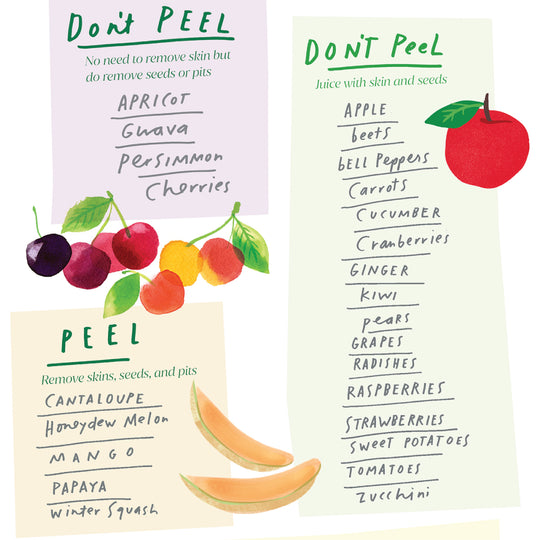 Don't PEEL
No need to remove skin but
do remove seeds or pits
APRICOT
Guava
PERSIMMON
Cherries
DON'T PeeL
Juice with skin and seeds
APPLE
beets
bELL PEPPERS
Carrots
CUCUMBER
Cranberries
GINGER
kiwi
peARS
GRAPES
RADISHES
RASPBERRIES
STRAWBERRIES
SWEET POTATOES
TOMATOES
Zucchini
PEEL
Remove skins, seeds, and pits
CANTALOUPE
Honeydew Melon
MANGO
PAPAYA
Winter Squash